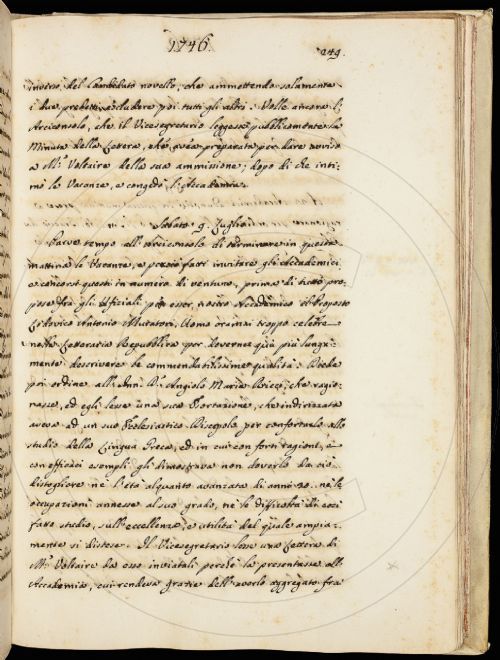 1746.
249.
inverso del Candidato novello, che ammettendo solamente
i due predetti, escludere poi tutti gli altri. Volle ancora l'
Arciconsolo, che il Vicesegretario leggesse pubblicamente la
Minuta della Lettera, che avea preparata per dare avviso
a M.r Voltaire della sua ammissione; dopo di che inti:
mò le Vacanze, e congedò l'Accademia.
Sabato 9. Luglio
Parve tempo all'Arciconsolo di terminare in questa
mattina le Vacanze, e perciò fatti invitare gli Accademici
e concorsi questi in numero di ventuno, prima di tutto pro:
pose fra gli Ufficiali per esser nostro Accademico il Proposto
Lodovico Antonio Muratori, Uomo oramai troppo celebre
nella Letteraria Repubblica per dovere quì più lunga:
mente descrivere le commendatissime qualità. Diede
poi ordine all' Angiolo Maria Ricci, che ragio:
nasse, ed egli lesse una sua Esortazione, che indirizzata
avea ad un suo Ecclesiastico Discepolo per confortarlo allo
studio della Lingua Greca, ed in cui con forti ragioni, e
con efficaci esempli gli dimostrava non doverlo da ciò
distogliere nè l'età alquanto avanzata di anni 30. nè le
occupazioni annesse al suo grado, nè le difficoltà di così
fatto studio, sull'eccellenza, e utilità del quale ampia:
mente si distese. Il Vicesegretario lesse una Lettera di
M.r Voltaire da esso inviatali perchè la presentasse all'
Accademia, cui rendeva grazie dell'averlo aggregato fra